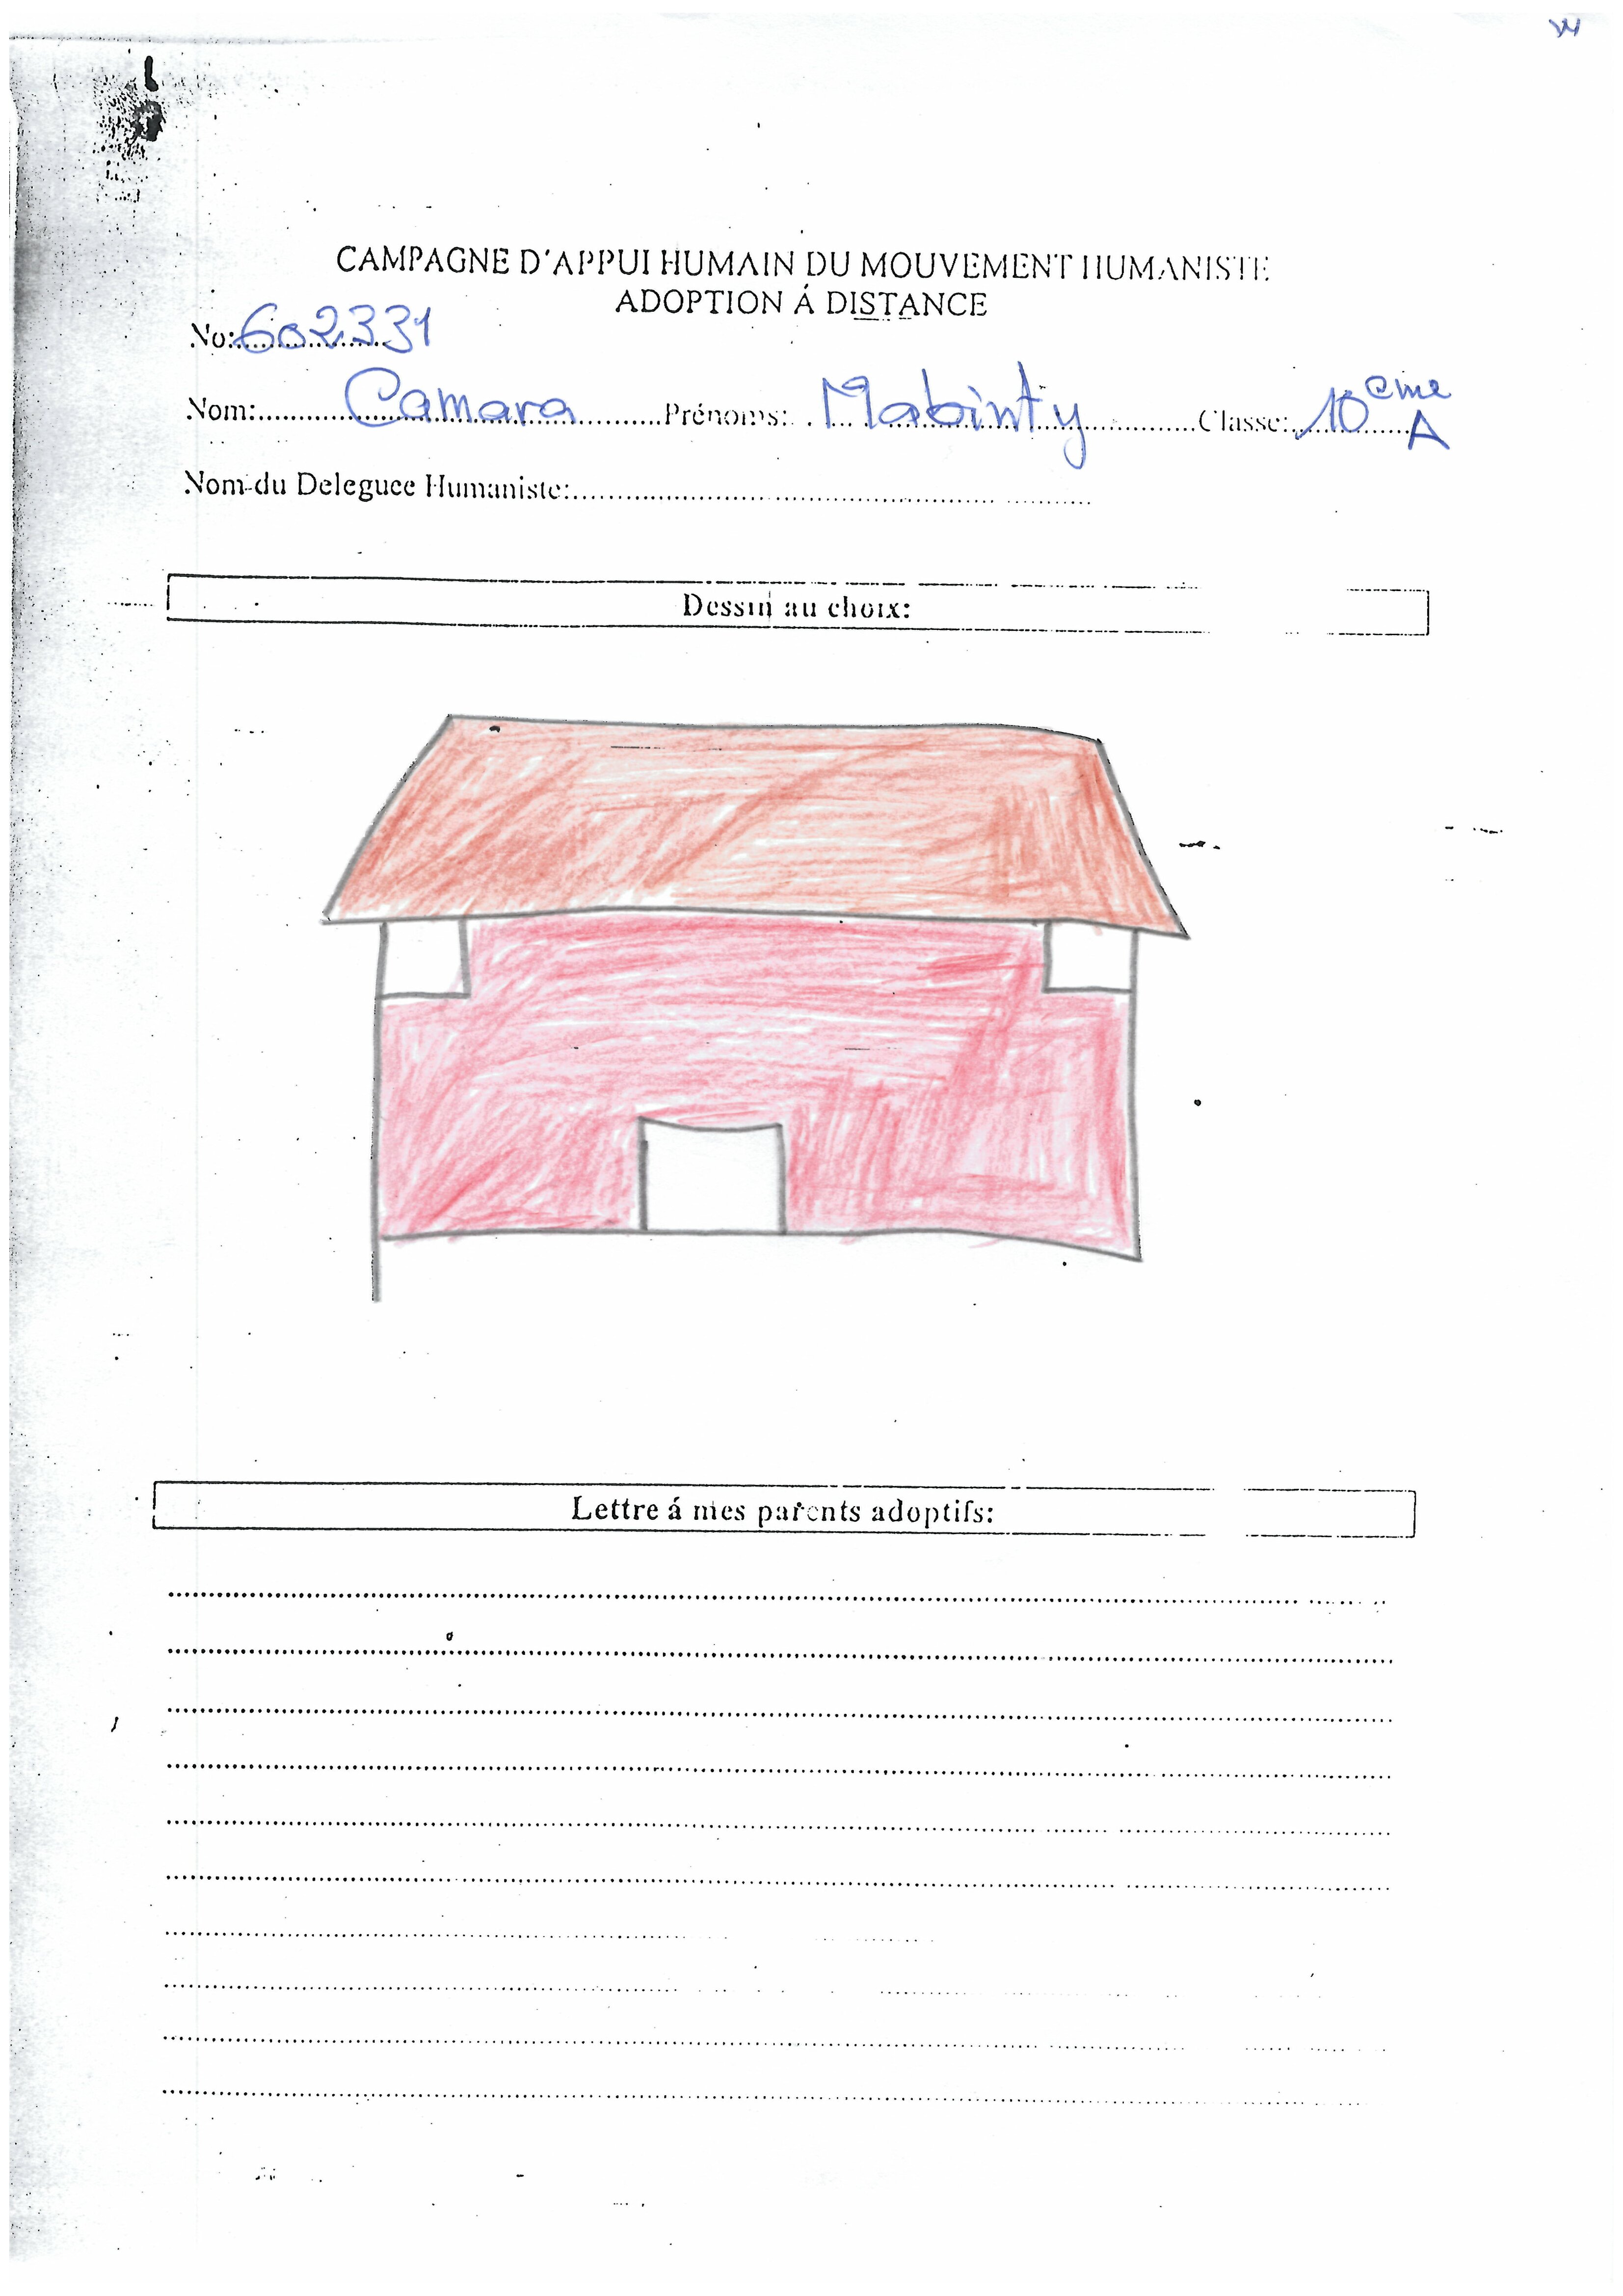 CAMPAGNE D'APPUI HUMAIN DU MOUVEMENT HUMANISTE
ADOPTION Á DISTANCE
No: 602331
Nom: Camara Prénoms: Mabinty Classe: 10ème A
Nom du Deleguee Humaniste:
Dessin au choix:
Lettre á mes parents adoptifs: